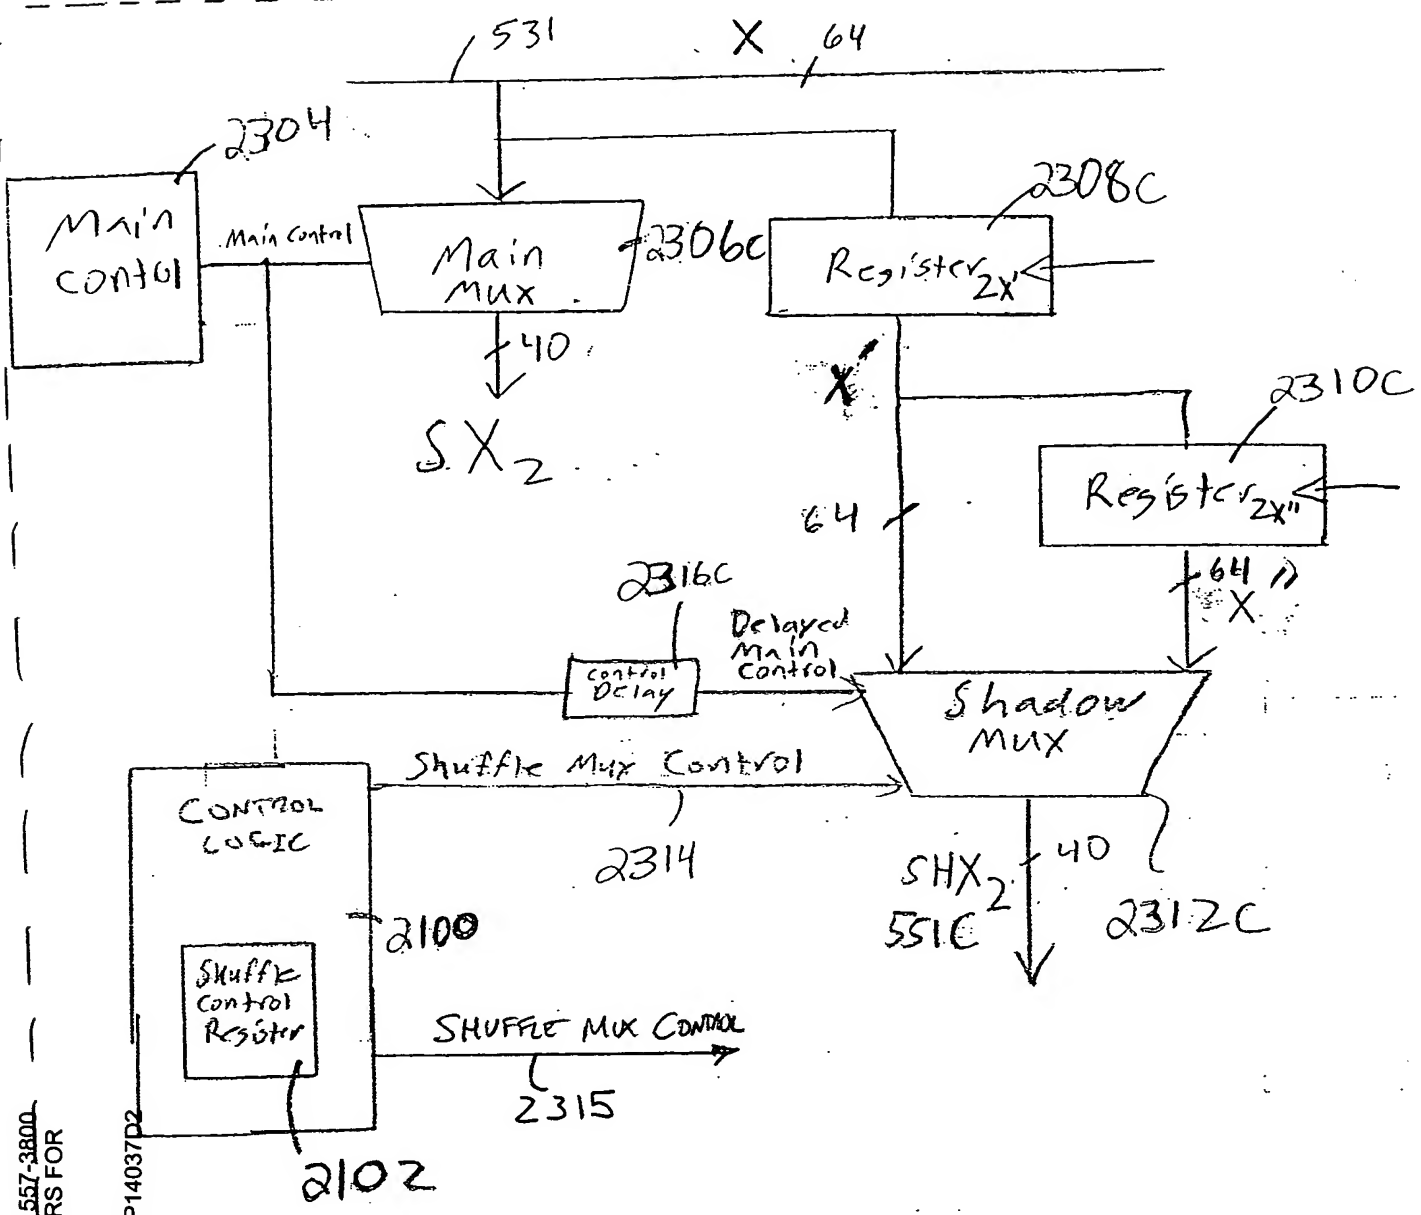 531
X
64
2304
Main
Contol
Main Control
Main
MUX
2306C
2308C
Register2X'
40
SX2
X'
2310C
Register2X"
64
64
X"
2316C
Control
Delay
Delayed
Main
Control
Shadow
MUX
Shuffle Mux Control
2314
CONTROL
LOGIC
2100
Shuffle
Control
Register
2102
40
SHX2
551C
2312C
SHUFFLE MUX CONTROL
2315
557-3800
RS FOR
P14037D2